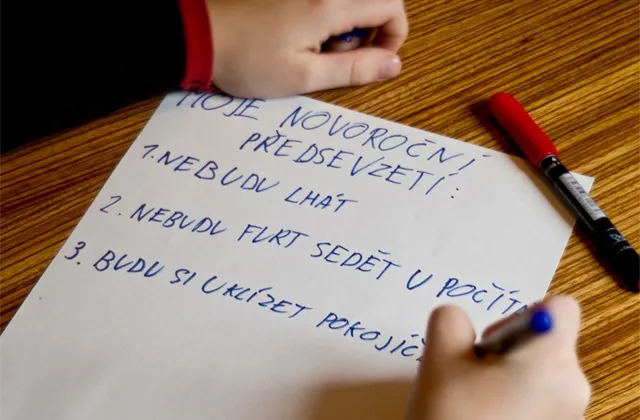 MOJE NOVOROČNÍ
PŘEDSEVZETÍ:
1. NEBUDU LHÁT
2. NEBUDU FURT SEDĚT U
3. BUDU SI UKLÍZET